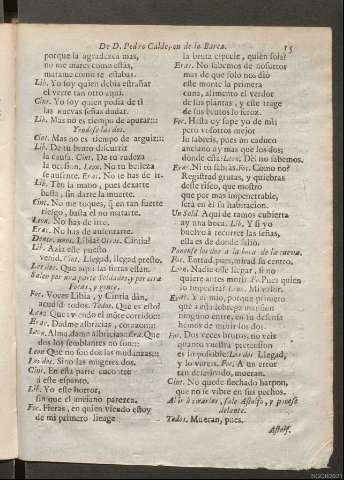 De D. Pedro Calderon de la Barca. 15
porque la agradezca mas,
no me mates como estas,
matame como te estabas.
Lib. Yo soy quien debia estrañar
el verte tan otro aqui.
Cint. Yo soy quien podia de ti
las nuevas señas dudar.
Lib. Mas no es tiempo de apurar:::
Yendose los dos.
Cint. Mas no es tiempo de arguir:::
Lib. De tu bruto discurrir
la causa. Cint. De tu rudeza
la ocasion. Leon. No tu belleza
se ausente. Erac. No te has de ir.
Lib. Ten la mano, pues dexarte
basta, sin darte la muerte.
Cint. No me toques, que en tan fuerte
riesgo, basta el no matarte.
Leon. No has de irte.
Erac. No has de ausentarte.
Dentr. unos. Libia? Otros. Cintia?
Lib. Azia este puesto
venid. Cint. Llegad, llegad presto.
Los dos. Que aqui las fieras están.
Salen por una parte Soldados, y por otra
Focas, y gente.
Foc. Voces Libia, y Cintia dán,
acudid todos. Todos. Que es esto?
Leon. Que
Erac. Dadme albricias, corazon:::
Leon. Alma dame albricias: Erac. Que
dos los semblantes no son:::
Leon. Que no son dos las mudanzas:::
Los dos. Sino las mugeres dos.
Cint. En esta parte encontré
á este espanto.
Lib. Yo este horror,
sin que el anciano parezca.
Foc. Heras, en quien viendo estoy
de mi primero linage
la bruta especie, quien sois?
Erac. No sabemos de nosotros
mas de que solo nos dió
este monte la primera
cuna, alimento el verdor
de sus plantas, y este trage
de sus brutos lo feroz.
Foc. Hasta oy supe yo de mi;
pero vosotros mejor
lo sabreis, pues un caduco
anciano ay mas que los dos:
dónde está? Leon. Dél no sabemos.
Erac. Ni tú sabrás. Foc. Cómo no?
Registrad grutas, y quiebras
deste risco, que mostró
que por mas impenetrable,
será en él su habitacion.
Un Sold. Aqui de ramos cubierta
ay una boca. Lib. Y si yo
buelvo á recorrer las señas,
ella es de donde salió.
Ponense los dos á la boca de la cueva.
Foc. Entrad, pues, mirad su centro.
Leon. Nadie ose llegar, si no
quiere antes morir. Foc. Pues quién
lo impedirá? Leon. Mi valor,
Erac. Y el mio, porque primero
ninguno entre, en su defensa
hemos de morir los dos.
Foc. Dos veces brutos, no veis
quanto vuestra pretension
es imposible? Los dos. Llegad,
y lo vereis. Foc. A un error
tan desvariado, mueran.
Cint. No quede flechado harpon,
que no se vibre en sus pechos.
Al ir á tirarlos, sale Astolfo, y ponese
delante.
Todos. Mueran, pues.
Astolf.